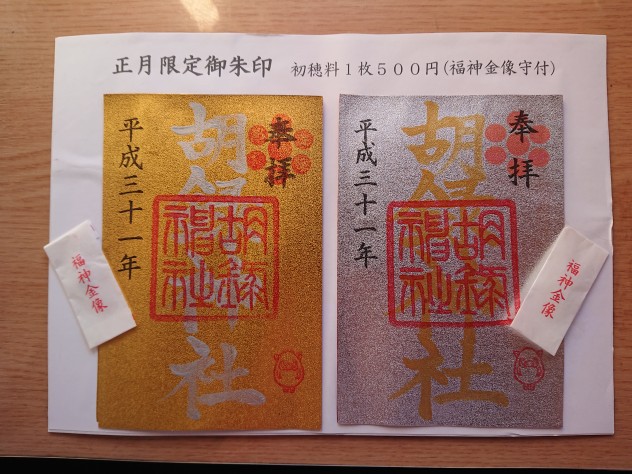 正月限定御朱印 初穂料1枚500円(福神金像守付)
奉拝
胡録神社
胡録
神社
平成三十一年
福神金像
奉拝
胡録神社
胡録
神社
平成三十一年
福神金像